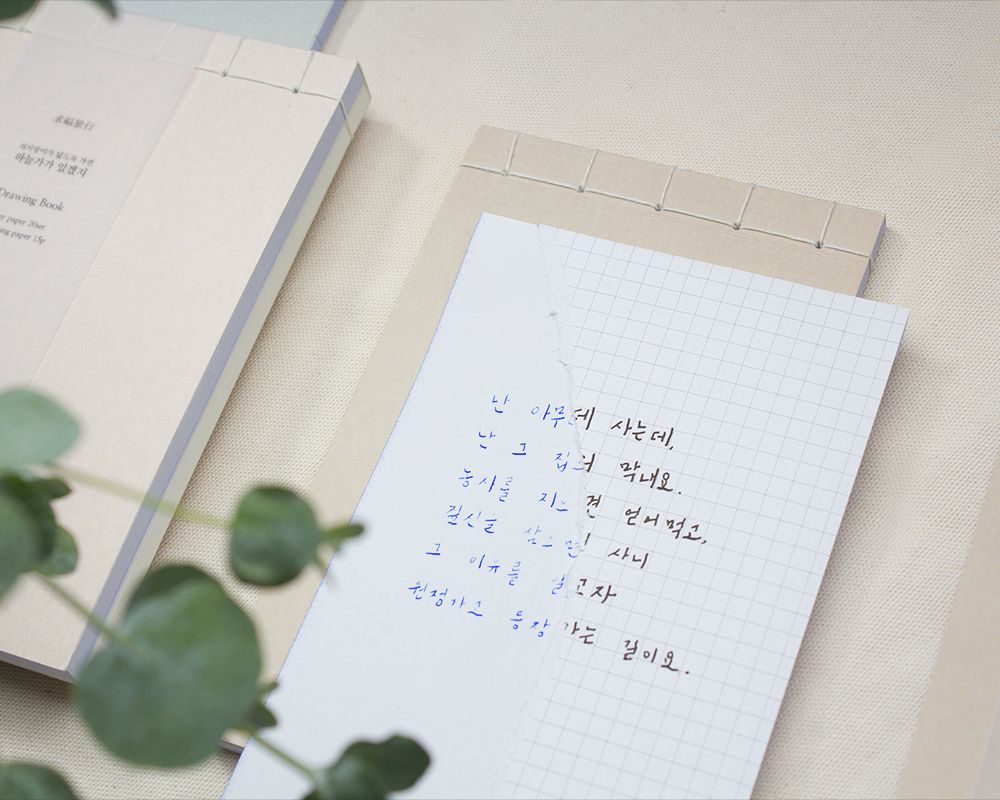 求福旅行
하늘가가 있겠지
Drawing Book
paper 20set
ing paper 15p
난 아무데 사는데,
난 그 집의 막내요.
농사를 지으면 얻어먹고,
짚신을 삼으면 사니
그 이유를 알고자
원정가고 등장 가는 길이요.